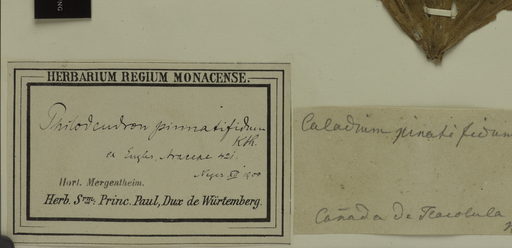 HERBARIUM REGIUM MONACENSE.
Philodendron pinnatifidum
Kth.
ex Engler, Araceae 421.
XII 1900
Hort. Mergentheim.
Herb. Smi. Princ. Paul, Dux de Würtemberg.
Caladium pinatifidum
Cañada de Tlacolula